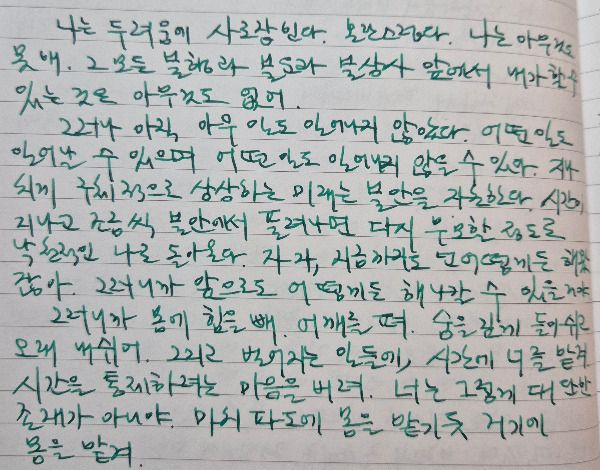 나는 두려움에 사로잡힌다. 혼란스럽다. 나는 아무것도
못해. 그 모든 불행과 불운과 불상사 앞에서 내가 할 수
있는 것은 아무것도 없어.
그러나 아직, 아무 일도 일어나지 않았다. 어떤 일도
일어날 수 있으며 어떤 일도 일어나지 않을 수 있어. 지나
치게 구체적으로 상상하는 미래는 불안을 자초한다. 시간이
지나고 조금씩 불안에서 풀려나면 다시 무모할 정도로
낙천적인 나로 돌아온다. 자 자, 지금까지도 넌 어떻게든 해왔
잖아. 그러니까 앞으로도 어떻게든 해 나갈 수 있을 거야
그러니까 몸에 힘을 빼. 어깨를 펴. 숨을 깊게 들이쉬고
오래 내쉬어. 그리고 벌어지는 일들에, 시간에 너를 맡겨
시간을 통제하려는 마음을 버려. 너는 그렇게 대단한
존재가 아니야. 마치 파도에 몸을 맡기듯 거기에
몸을 맡겨.